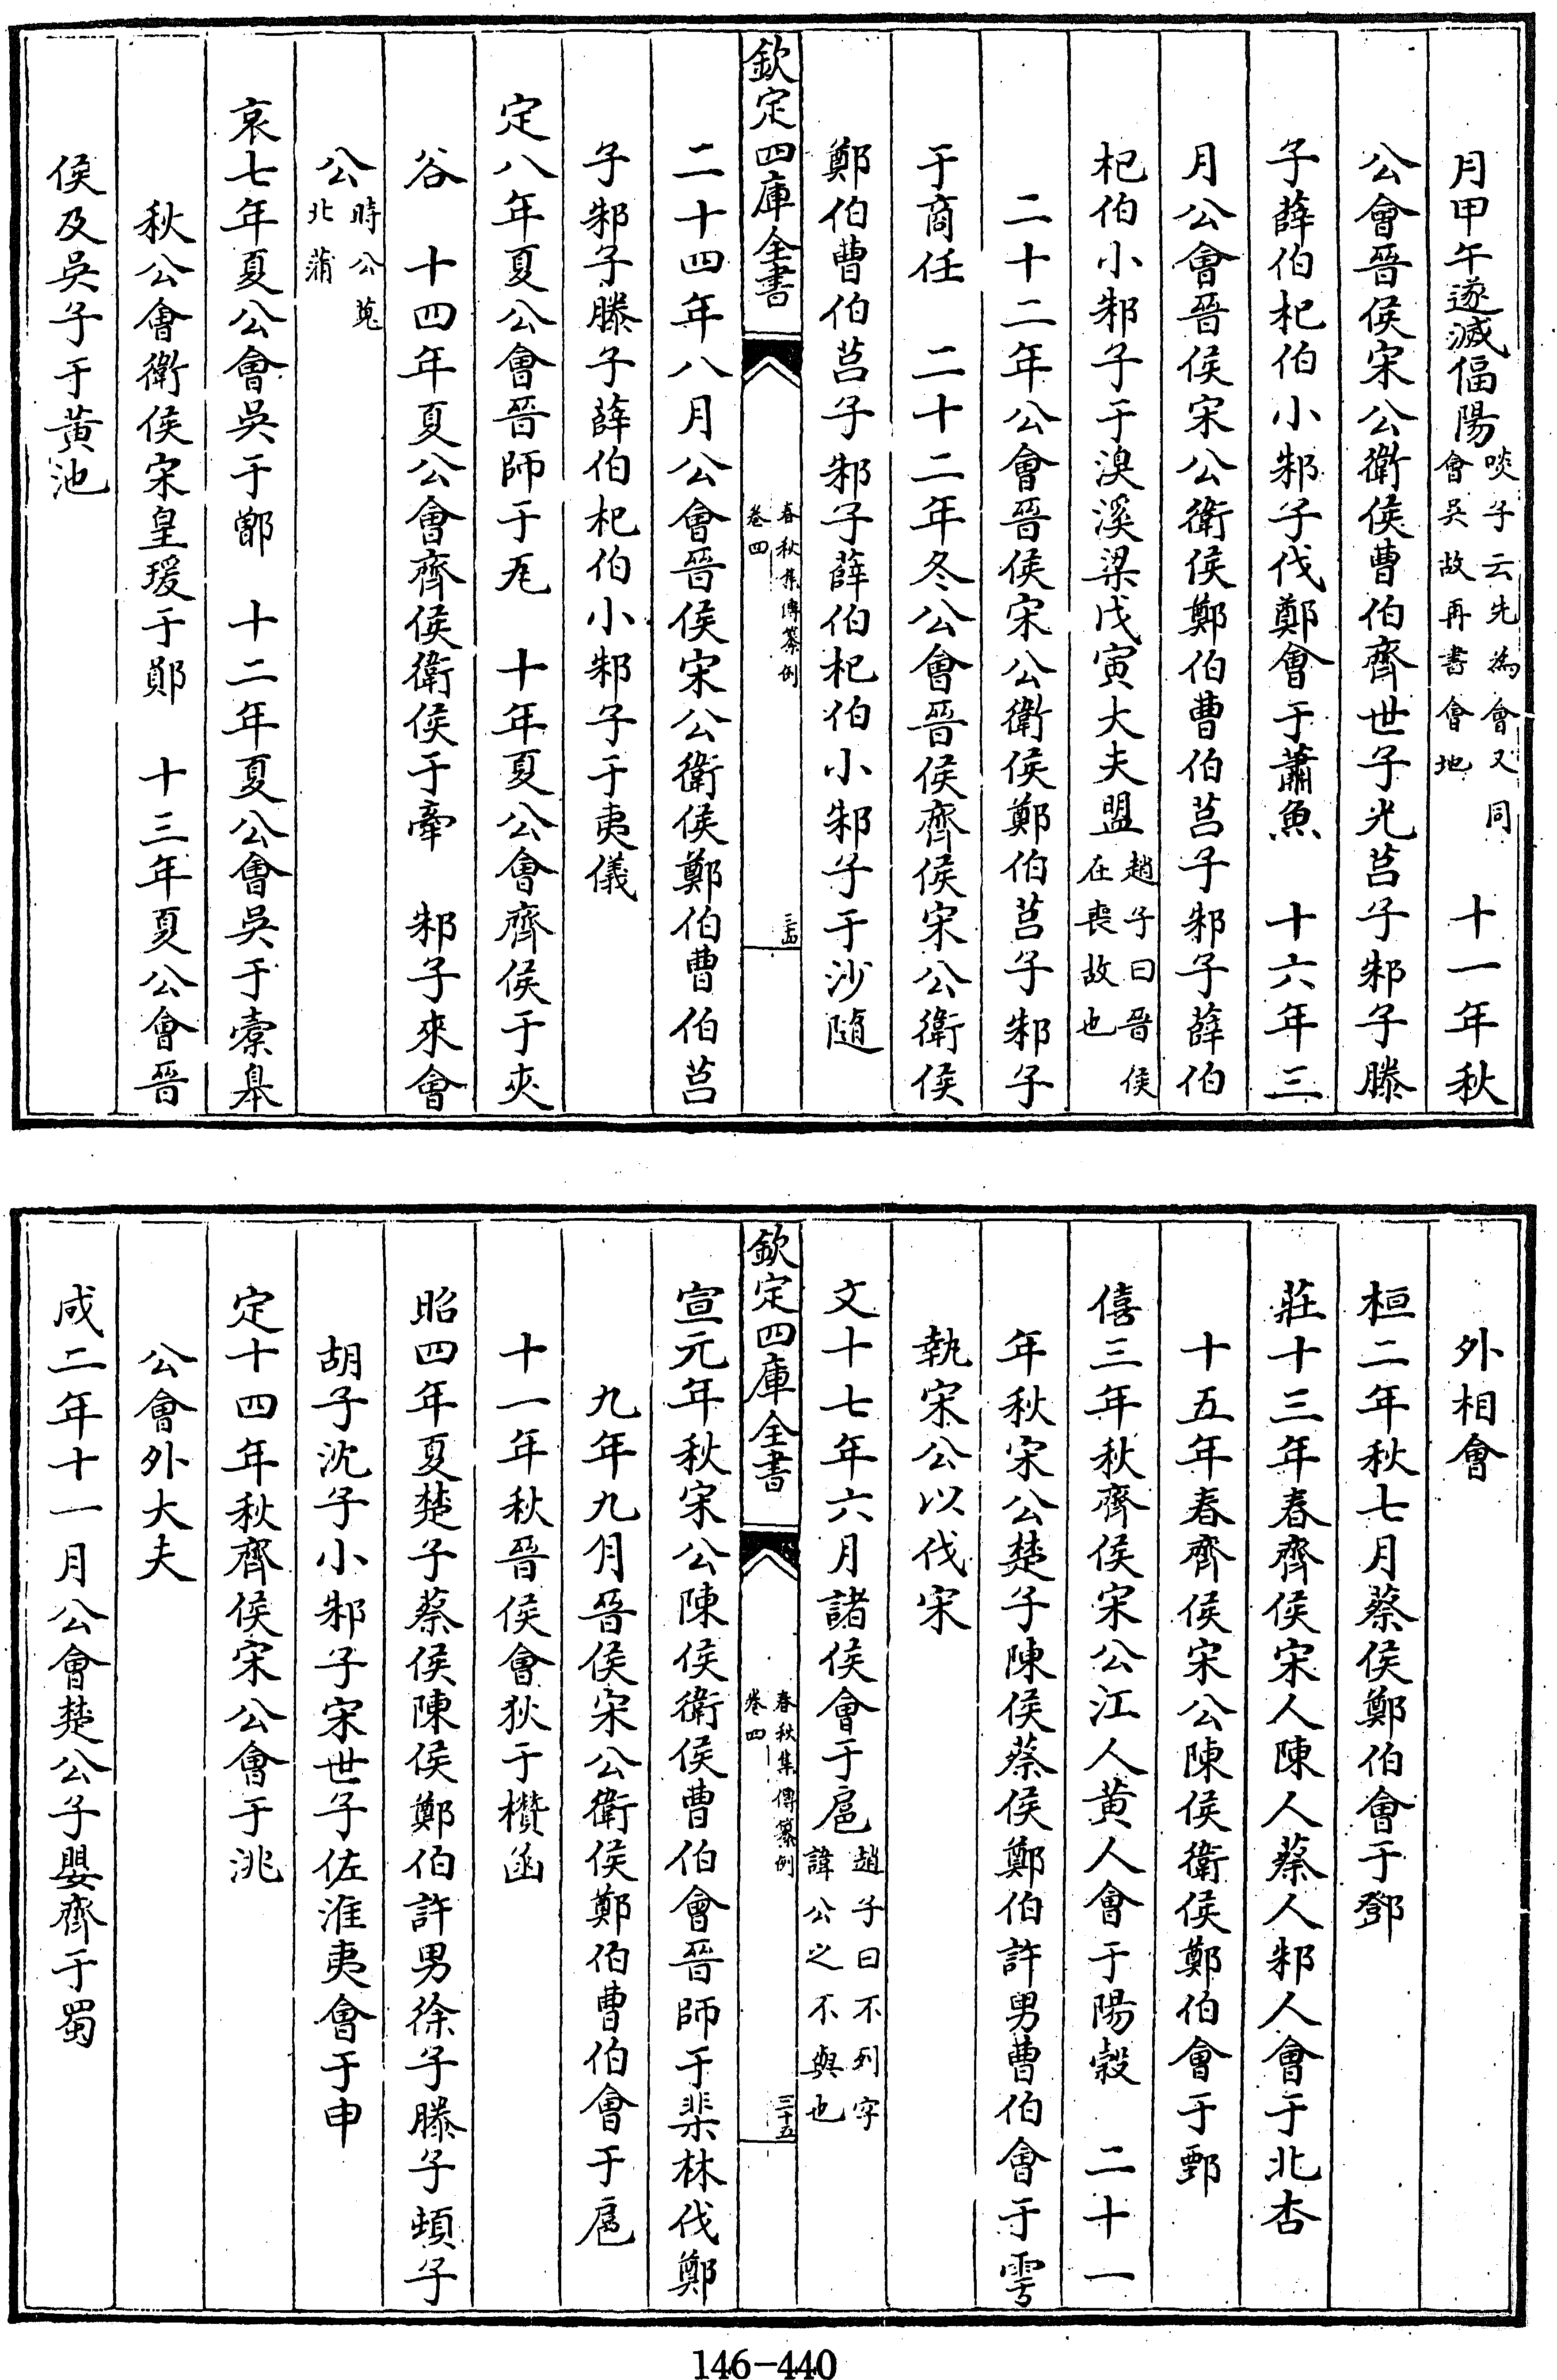 月甲午遂滅偪陽啖子云先為會又同會吳故再書會地　十一年秋
公會晉侯宋公衛侯曹伯齊世子光莒子邾子滕
子薛伯杞伯小邾子伐鄭會于蕭魚　十六年三
月公會晉侯宋公衛侯鄭伯曹伯莒子邾子薛伯
杞伯小邾子于湨溪梁戊寅大夫盟趙子曰晉侯在喪故也
二十二年公會晉侯宋公衛侯鄭伯莒子邾子
于商任　二十二年冬公會晉侯齊侯宋公衛侯
鄭伯曹伯莒子邾子薛伯杞伯小邾子于沙隨
欽定四庫全書　春秋集傳纂例卷四　三十四
二十四年八月公會晉侯宋公衛侯鄭伯曹伯莒
子邾子滕子薛伯杞伯小邾子于夷儀
定八年夏公會晉師于瓦　十年夏公會齊侯于夾
谷　十四年夏公會齊侯衛侯于牽　邾子來會
公時公蒐北蒲
哀七年夏公會吳于鄫　十二年夏公會吳于橐皋
秋公會衛侯宋皇瑗于鄖　十三年夏公會晉
侯及吳子于黃池
外相會
桓二年秋七月蔡侯鄭伯會于鄧
莊十三年春齊侯宋人陳人蔡人邾人會于北杏
十五年春齊侯宋公陳侯衛侯鄭伯會于鄄
僖三年秋齊侯宋公江人黃人會于陽榖　二十一
年秋宋公楚子陳侯蔡侯鄭伯許男曹伯會于雩
執宋公以伐宋
文十七年六月諸侯會于扈趙子曰不列字諱公之不與也
欽定四庫全書　春秋集傳纂例卷四　三十五
宣元年秋宋公陳侯衛侯曹伯會晉師于棐林伐鄭
九年九月晉侯宋公衛侯鄭伯曹伯會于扈
十一年秋晉侯會狄于欑函
昭四年夏楚子蔡侯陳侯鄭伯許男徐子滕子頓子
胡子沈子小邾子宋世子佐淮夷會于申
定十四年秋齊侯宋公會于洮
公會外大夫
成二年十一月公會楚公子嬰齊于蜀
146-440